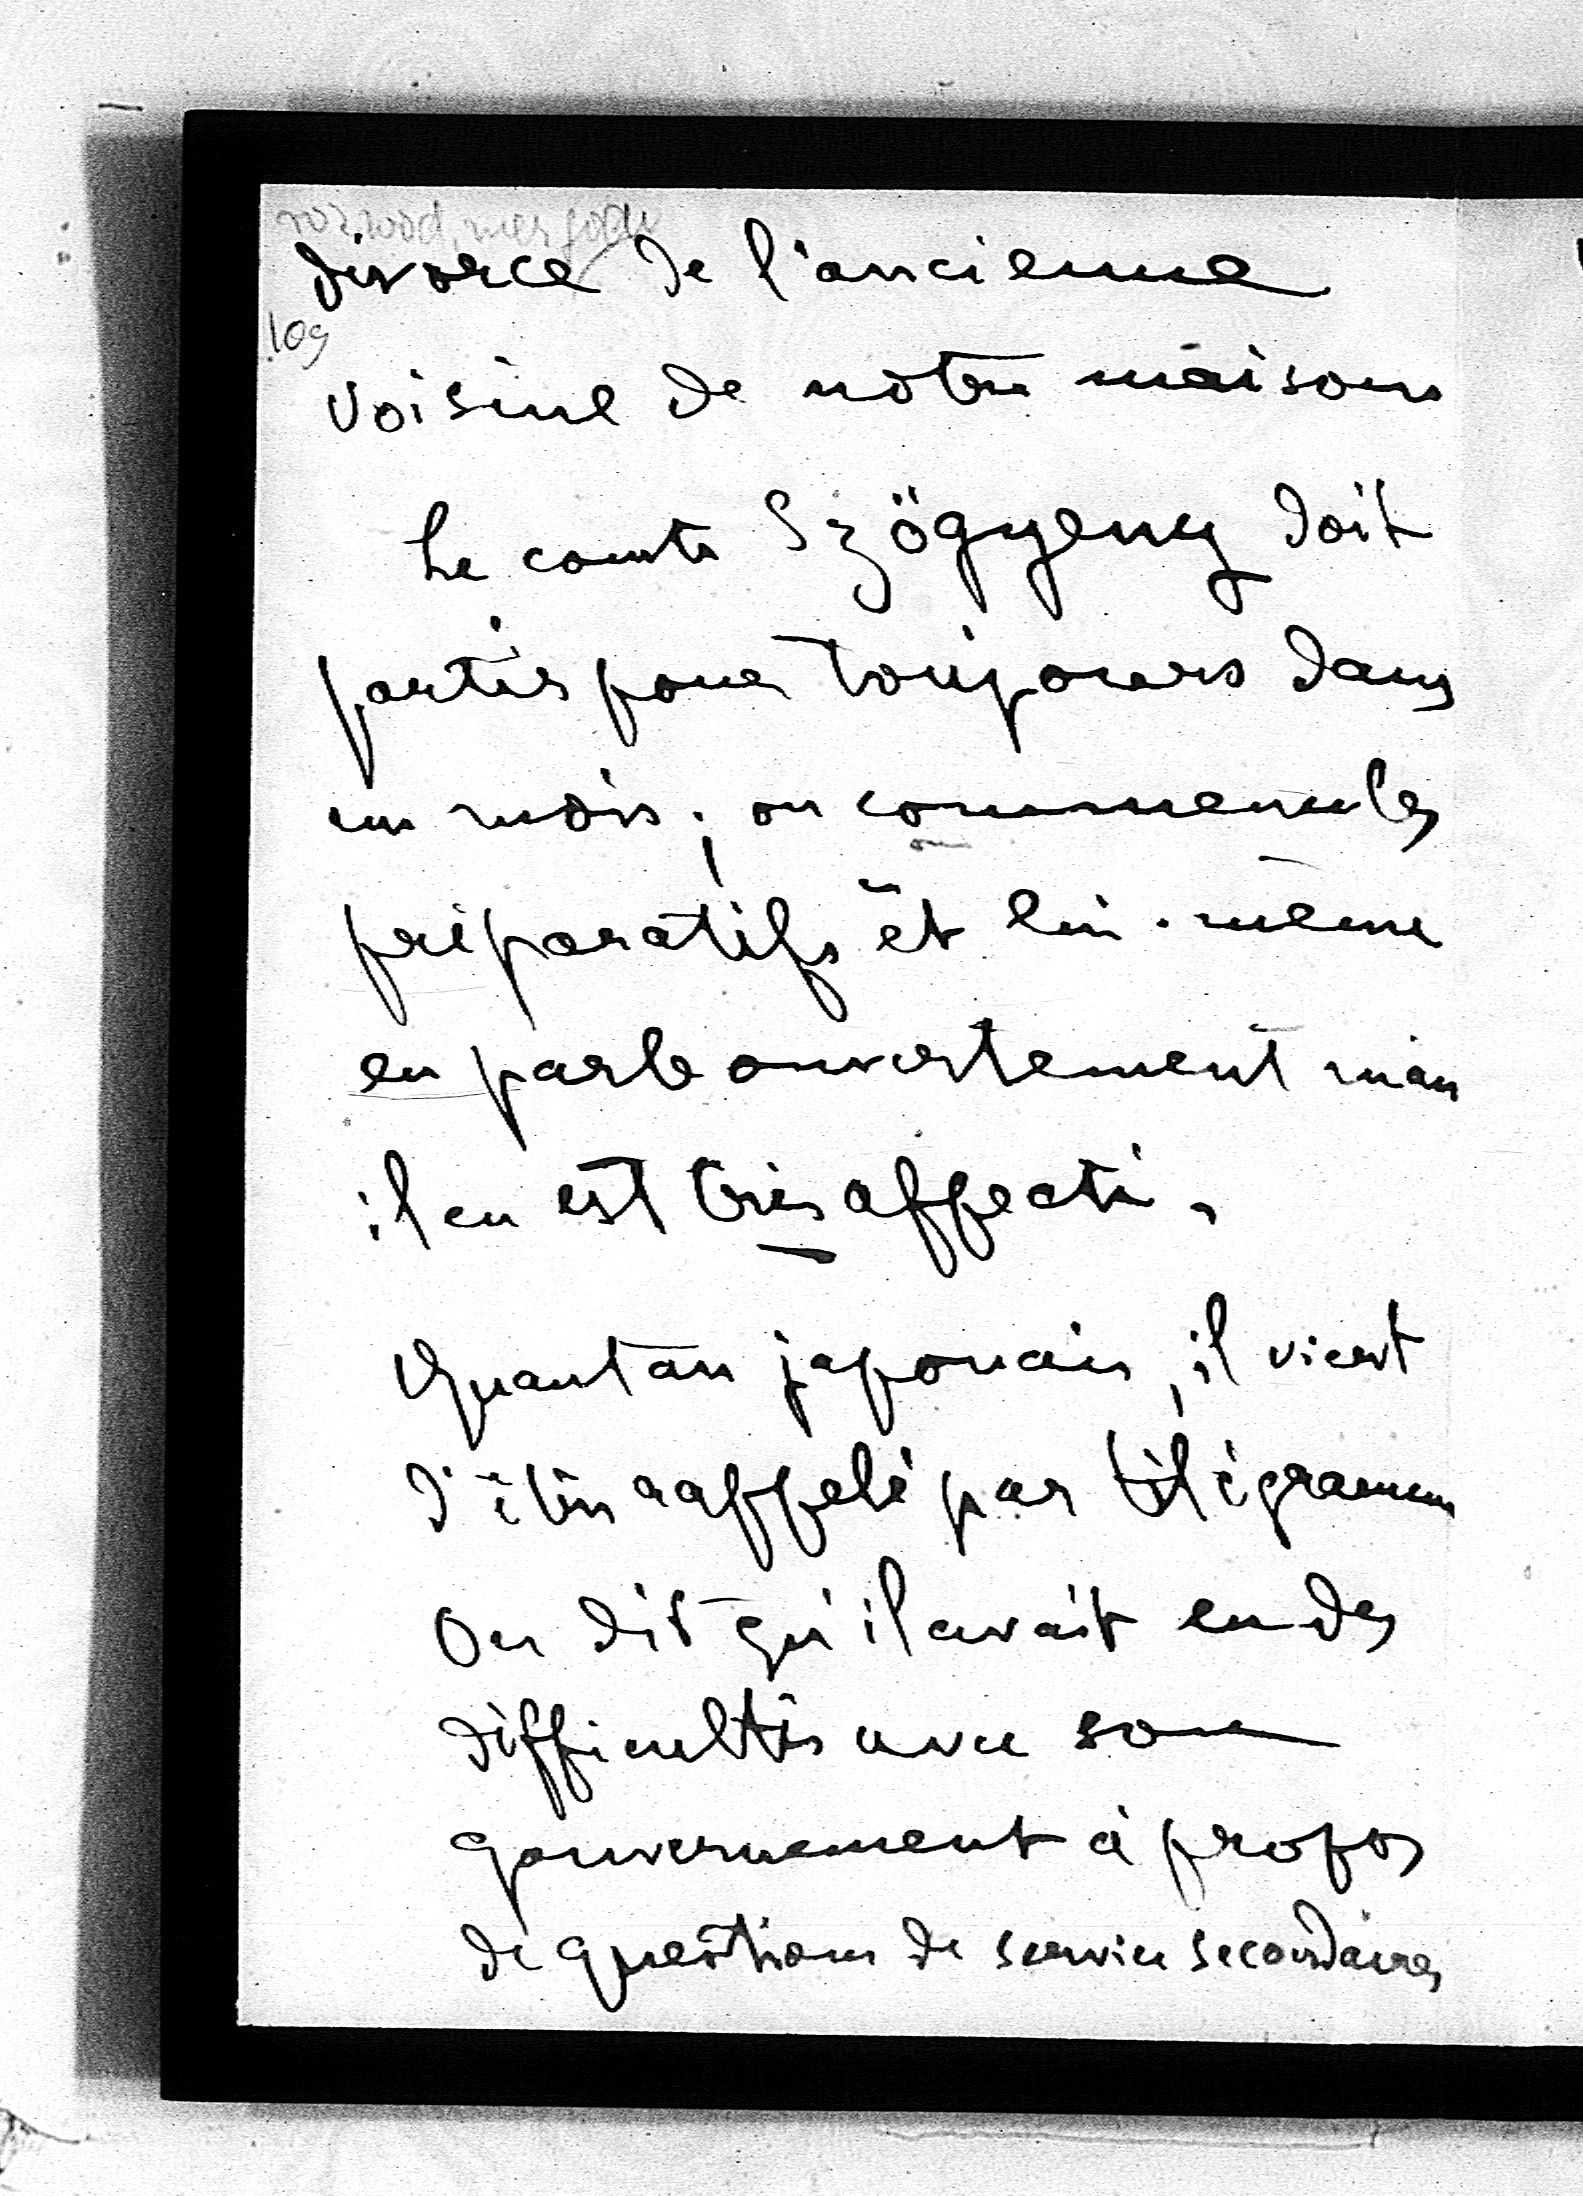 divorce de l'ancienne
109
voisine de notre maison
Le comte Szögyeny doit
partir pour toujours dans
un mois; on commence les
préparatifs et lui-même
en parle ouvertement mais
il en est très affecté.
Quant au japonais, il vient
d'être rappelé par télégramme
On dit qu'il avait eu des
difficultés avec son
gouvernement à propos
de questions de service secondaires